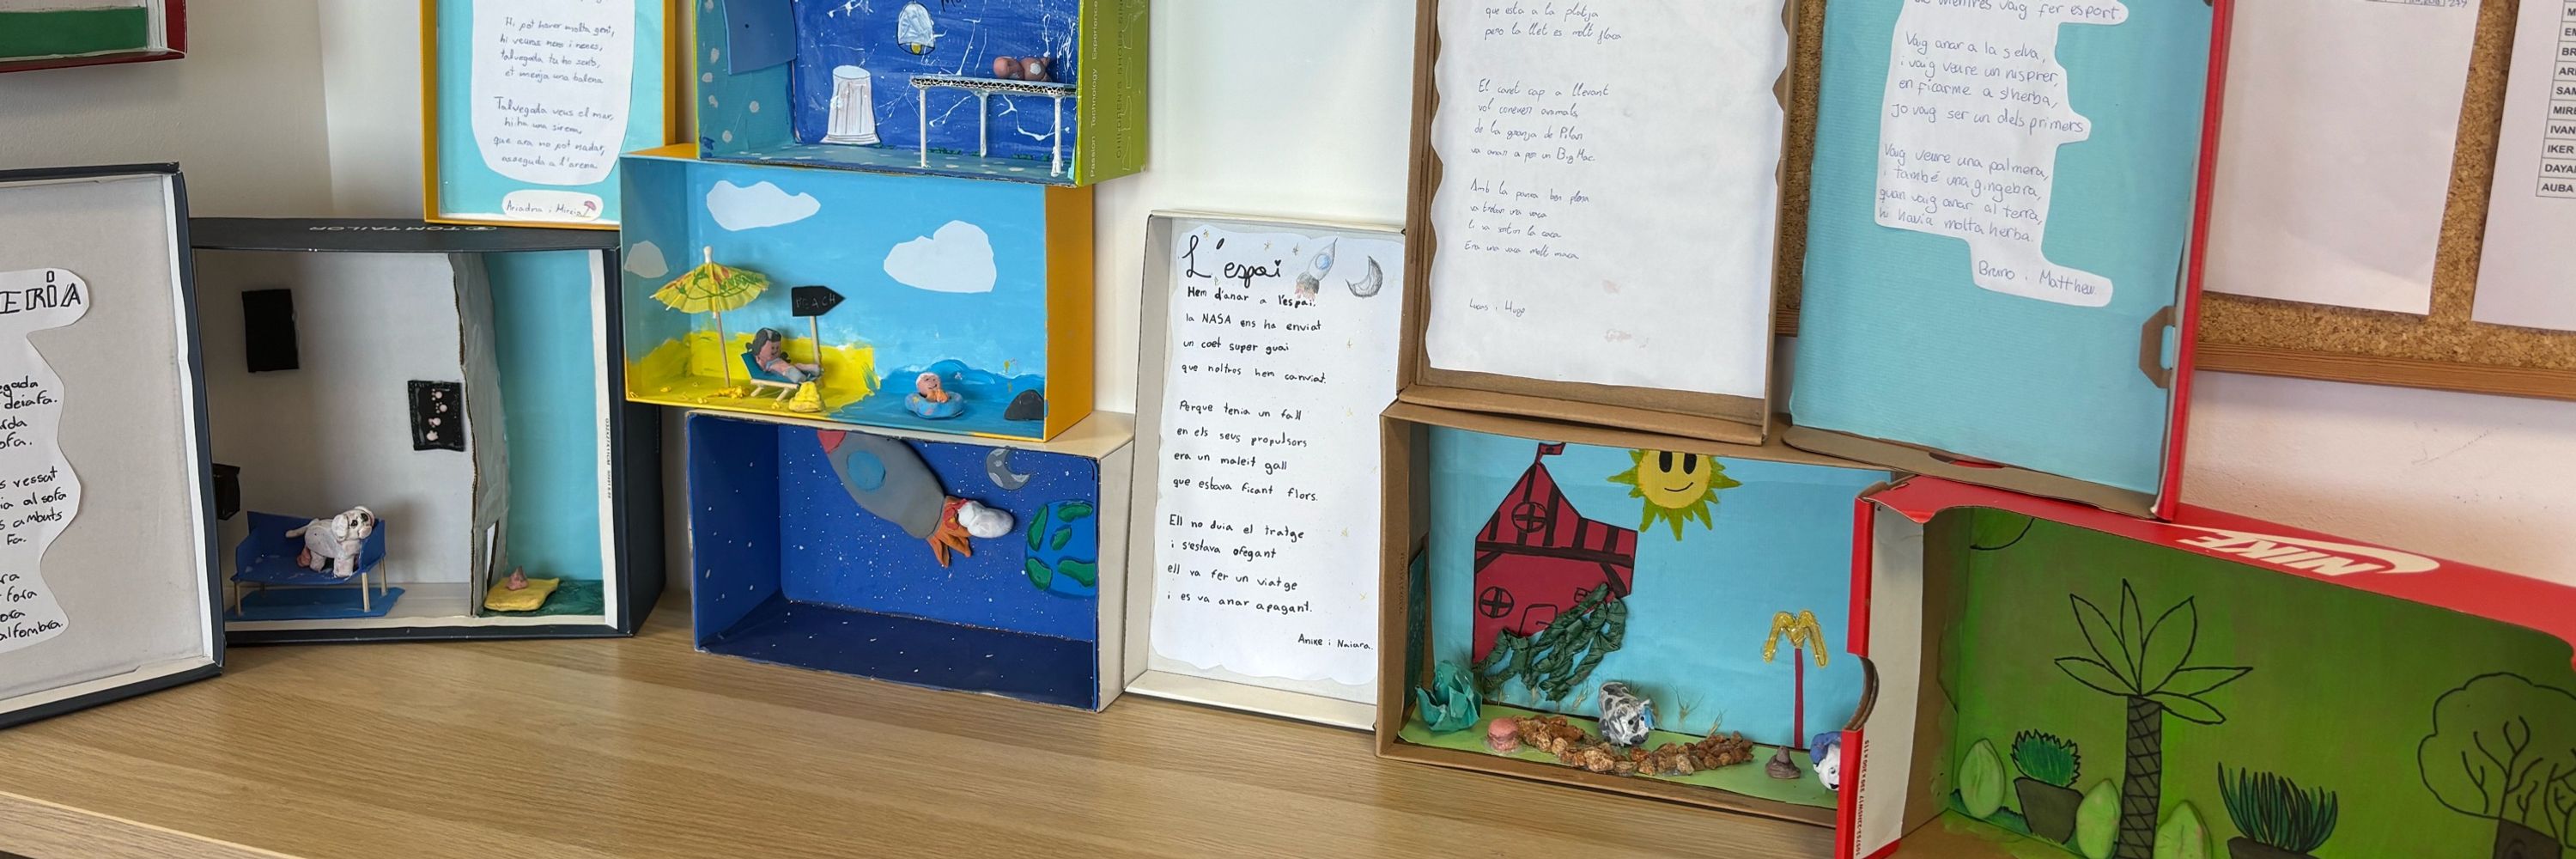 ERIA
egada
deiafa.
ofa.
s vessat
ia al sofa
s ambuts
Fa.
ra
fora
ora
alfombra.
TOM TAILOR
Hi pot haver molta gent,
hi veuras nens i nenes,
talvegada tu ho sents,
et menja una balena
Talvegada veus el mar,
hi ha una sirena,
que ara no pot nadar,
asseguda a l'arena.
Ariadna i Mireia
Passion Technology Experience
BEACH
L'espai
Hem d'anar a l'espai.
la NASA ens ha enviat
un coet super guai
que noltros hem canviat.
Perque tenia un fall
en els seus propulsors
era un maleit gall
que estava ficant flors.
Ell no duia el tratge
i s'estava ofegant
ell va fer un viatge
i es va anar apagant.
Anixe i Naiara.
que esta a la platja
pero la llet es molt flaca
El conill cap a llevant
vol coneixer animals
de la granja de Pilar
va anar a per un Big Mac.
Amb la panxa ben plena
va trobar una vaca
li va sortir la caca
Era una vaca molt maca
Lucas i Hugo
mentres vaig fer esport.
Vaig anar a la selva,
i vaig veure un nisprer,
en ficarme a s'herba,
Jo vaig ser un dels primers.
Vaig veure una palmera,
i també una gingebra,
quan vaig anar al terra,
hi havia molta herba.
Bruno i Matthew
NIKE
M
EM
BR
AR
SAM
MIRE
IVAN
IKER
DAYA
AUBA